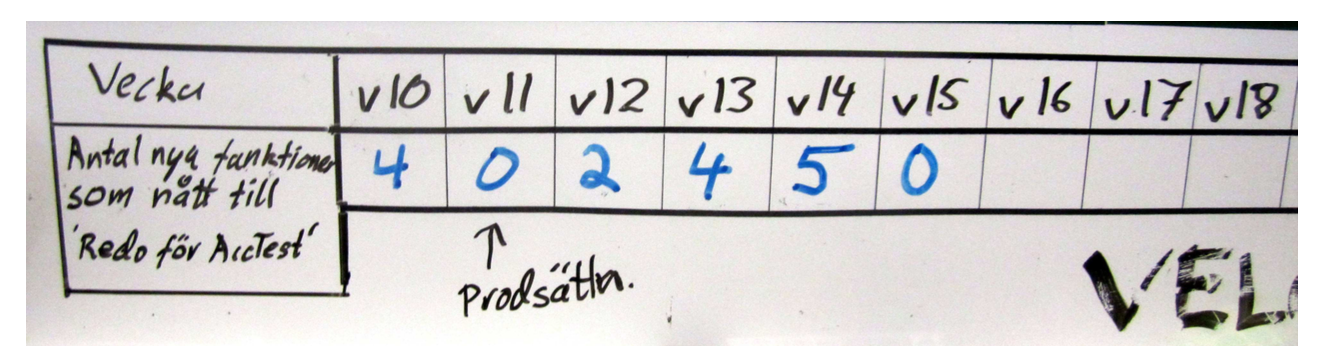 Vecka v10 v11 v12 v13 v14 v15 v16 v.17 v18
Antal nya funktioner 4 0 2 4 5 0
som nått till
'Redo för AccTest'
↑
Prodsättn.
VEL